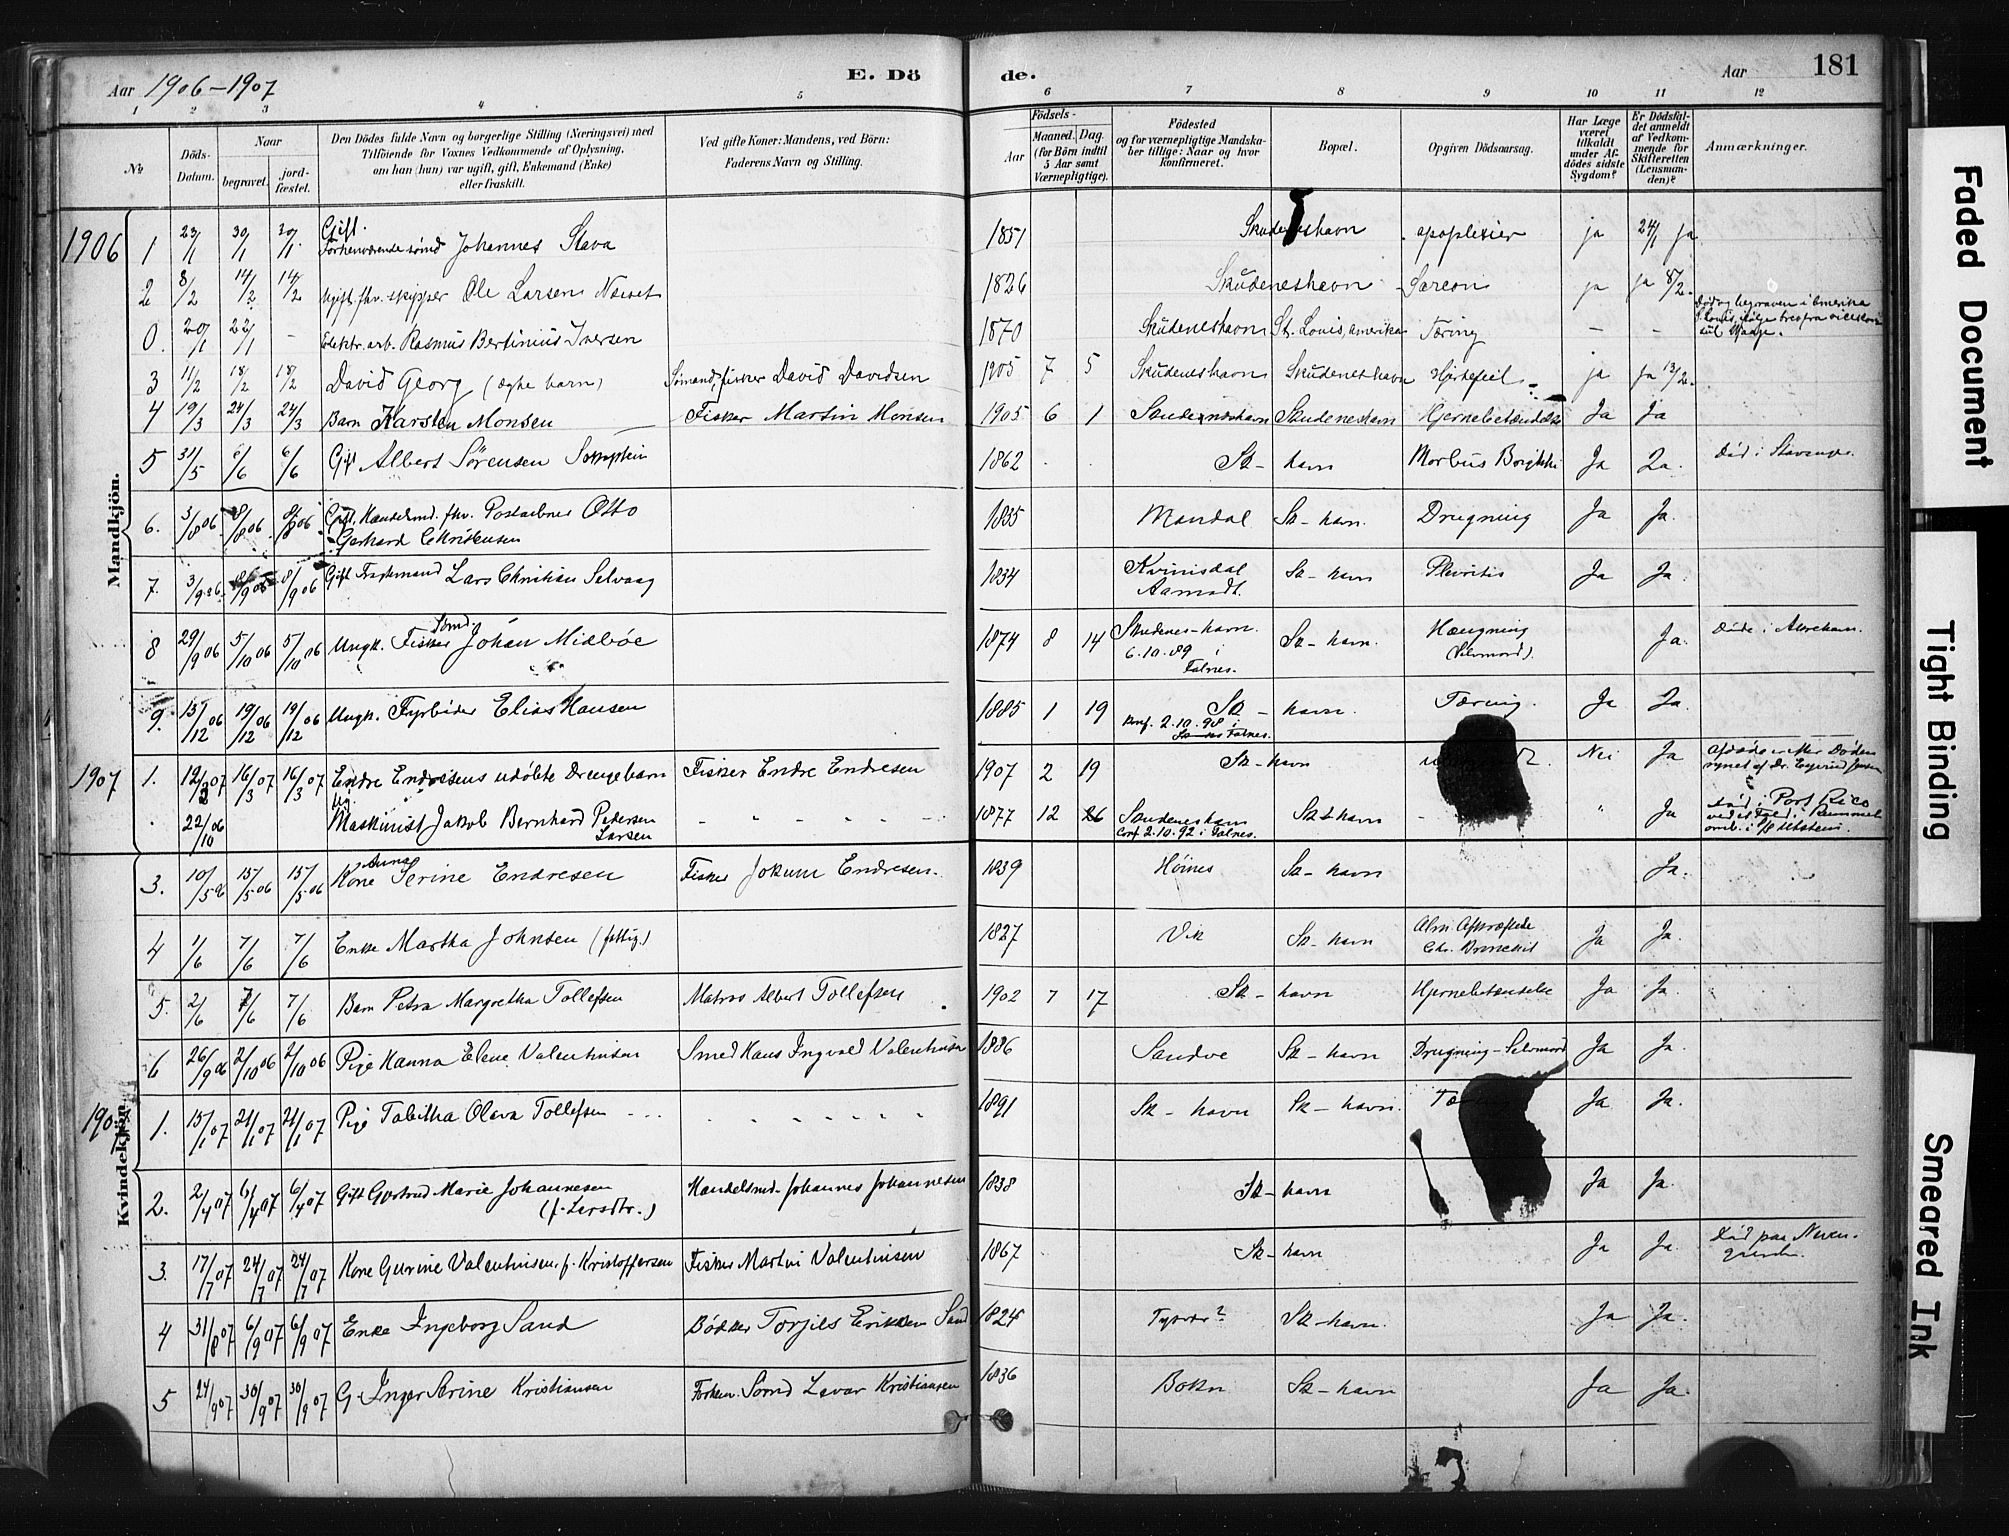 Aar 1906-1907
E. Dö
de.
Aar
181
1 2 3 4 5 6 7 8 9 10 11 12
No.
Döds-Datum.
Naar
begravet.
jord-fæstet.
Den Dödes fulde Navn og borgerlige Stilling (Næringsvei) med
Tilföiende for Voxnes Vedkommende af Oplysning,
om han (hun) var ugift, gift, Enkemand (Enke)
eller fraskilt.
Ved gifte Koner: Mandens, ved Börn:
Faderens Navn og Stilling.
Födsels-
Aar
Maaned. Dag.
(for Börn indtil
5 Aar samt
Værnepligtige).
Födested
og for værnepligtige Mandska-
ber tillige: Naar og hvor
konfirmeret.
Bopæl.
Opgiven Dödsaarsag.
Har Læge
været
tilkaldt
under Af-
dödes sidste
Sygdom?
Er Dödsfal-
det anmeldt
af Vedkom-
mende for
Skifteretten
(Lensman-
den)?
Anmærkninger.
Mandkjön.
1906 1 23/1 30/1 30/1 Gift. Johannes Stava 1851 Skudeneshavn apoplexier ja 24/1 ja
2 8/2 14/2 14/2 Ugift. fhv. skipper Ole Larsen Næset 1826 Skudeneshavn ja ja 8/2.
0. 20/1 22/1 - Elektr. arb. Rasmus Bertinius Iversen 1870 Skudeneshavn St. Louis, Amerika Tæring - - Död og begraven i Amerika
3 11/2 18/2 18/2 David Georg (ægte barn) Sömand, fisker David Davidsen 1905 7 5 Skudeneshavn Skudeneshavn Hjertefeil ja ja 13/2.
4 19/3 24/3 24/3 Barn Karsten Monsen Fisker Martin Monsen 1905 6 1 Skudeneshavn Skudeneshavn Hjernebetændelse Ja Ja
5 31/5 6/6 6/6 Gift Albert Sörensen 1862 Sk-havn Morbus Ja Ja. Död i Stavanger.
6. 3/8 06 8/8 06 8/8 06 Gift, Handelsmd. fhv. Postaabner Otto
Gerhard Christensen 1835 Mandal Sk-havn. Drugning Ja Ja.
7. 3/9 06 8/9 06 8/9 06 Gift Lars Christian Selvaag 1834 Kvinisdal
Aamodt. Sk-havn Plevritis Ja Ja.
8 29/9 06 5/10 06 5/10 06 Ungk. Fisker Sömd. Johan Midböe 1874 8 14 Skudenes-havn.
6.10.89 i
Falnes. Sk-havn. Hængning
(Selvmord). Ja. Döde i Akrehavn.
9. 15/12 06 19/12 06 19/12 06 Ungk. Fyrböder Elias Hansen 1885 1 19 Sk-havn.
konf. 2.10.98 i
Falnes. Tæring. Ja Ja.
1907 1. 12/3 07 16/3 07 16/3 07 Endre Endresens udöbte Drengebarn Fisker Endre Endresen 1907 2 19 Sk-havn Nei Ja
22/10 06 Ug. Maskinist Jakob Bernhard Petersen
Larsen 1877 12 26 Skudeneshavn
Conf. 2.10.92 i Falnes. Sk-havn - " Ja Död i Port Rico
Kvindekjön.
3. 10/5 06 15/5 06 15/5 06 Kone Anna Serine Endresen Fisker Jokum Endresen. 1839 Höines Sk-havn Ja.
4 1/6 7/6 7/6 Enke Martha Johnsen (fattig.) 1827 Vik Sk-havn Alm. Afkræftelse Ja Ja.
5. 2/6 7/6 7/6 Barn Petra Margretha Tollefsen Matros Albert Tollefsen 1902 7 17 Sk-havn Hjernebetændelse Ja Ja.
6 26/9 06 2/10 06 2/10 06 Pige Hanna Elene Valentinsen Smed Hans Ingvald Valentinsen 1886 Sandve Sk-havn Drugning-Selvmord Ja Ja.
1907 1. 15/1 07 21/1 07 21/1 07 Pige Tabitha Olava Tollefsen 1891 Sk-havn Sk-havn. Ja Ja.
2. 2/4 07 6/4 07 6/4 07 Gift Gertrud Marie Johannesen
(f. Larsdtr.) Handelsmd. Johannes Johannesen 1838 Sk-havn Ja Ja.
3. 17/7 07 24/7 07 24/7 07 Kone Gurine Valentinsen. f. Kristoffersen Fisker Martin Valentinsen 1867 Sk-havn Ja Ja. Död paa
4 31/8 07 6/9 07 6/9 07 Enke Ingeborg Sand Bödker Torjils Eriksen Sand 1824 Tysvær? Sk-havn. Ja Ja.
5 24/9 07 30/9 07 30/9 07 G. Inger Serine Kristiansen Forhen. Sömd Kristiansen 1836 Bokn Sk-havn Ja Ja.
Faded Document
Tight Binding
Smeared Ink